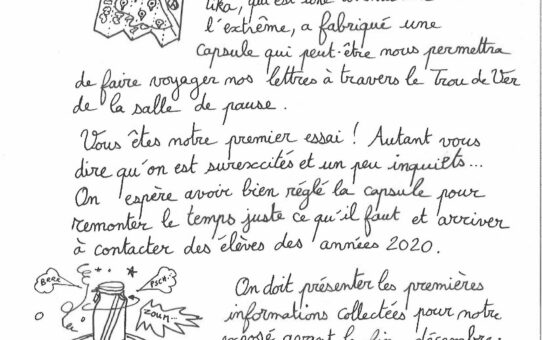 l'extrême, a fabriqué une
capsule qui peut-être nous permettra
de faire voyager nos lettres à travers le Trou de Ver
de la salle de pause.
Vous êtes notre premier essai ! Autant vous
dire qu'on est surexcités et un peu inquiets...
On espère avoir bien réglé la capsule pour
remonter le temps juste ce qu'il faut et arriver
à contacter des élèves des années 2020.
BRRR
PSCH...
ZOUM...
On doit présenter les premières
informations collectées pour notre